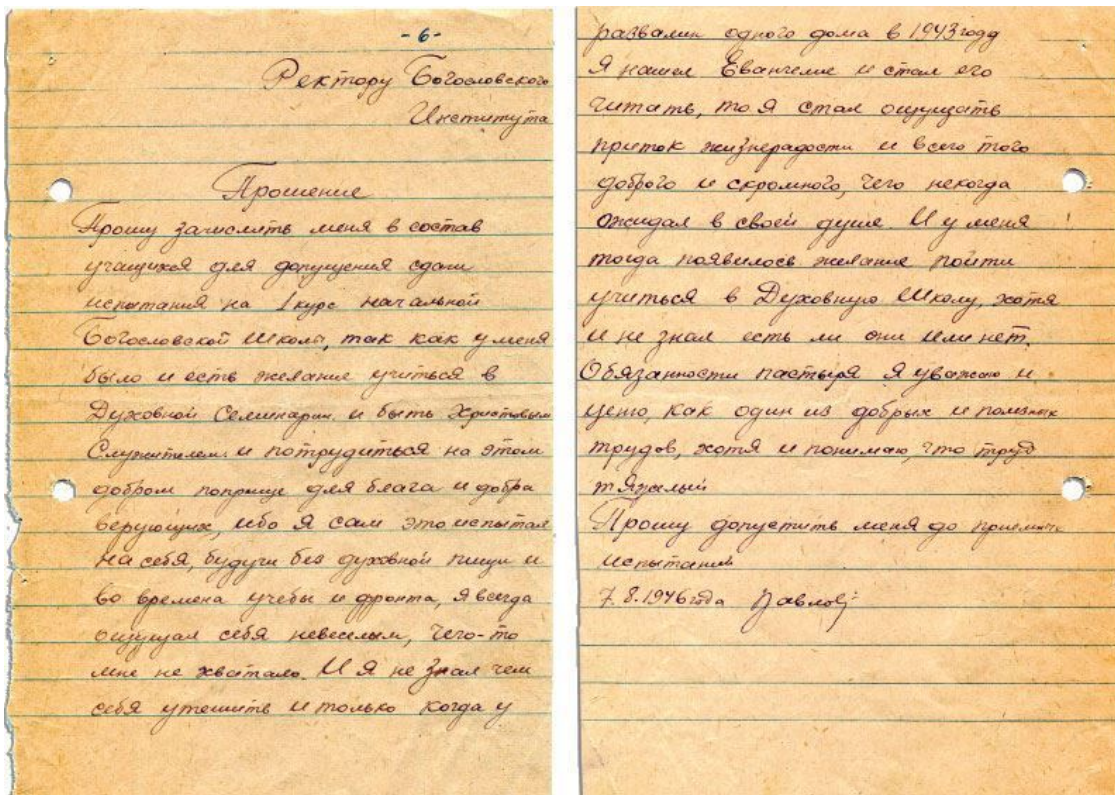 -6-
Ректору Богословского
Института
Прошение
Прошу зачислять меня в состав
учащихся для допущения сдачи
испытания на I курс начальной
Богословской Школы, так как у меня
было и есть желание учиться в
Духовной Семинарии и быть Христовым
Служителем и потрудиться на этом
добром поприще для блага и добра
верующих, ибо Я сам это испытал
на себя, будучи без духовной пищи и
во времена учебы и фронта, Я всегда
ощущал себя невеселым, чего-то
мне не хватало. И Я не знал чем
себя утешить и только когда у
развалин одного дома в 1943 году
Я нашел Евангелие и стал его
читать, то Я стал ощущать
приток жизнерадости и всего того
доброго и скромного, чего некогда
ожидал в своей душе. И у меня
тогда появилось желание пойти
учиться в Духовную Школу, хотя
и не знал есть ли они или нет.
Обязанности пастыря Я уважаю и
ценю, как один из добрых и полезных
трудов, хотя и понимаю, что труд
тяжелый
Прошу допустить меня до приемных
испытаний
7.8.1946 года Павлов